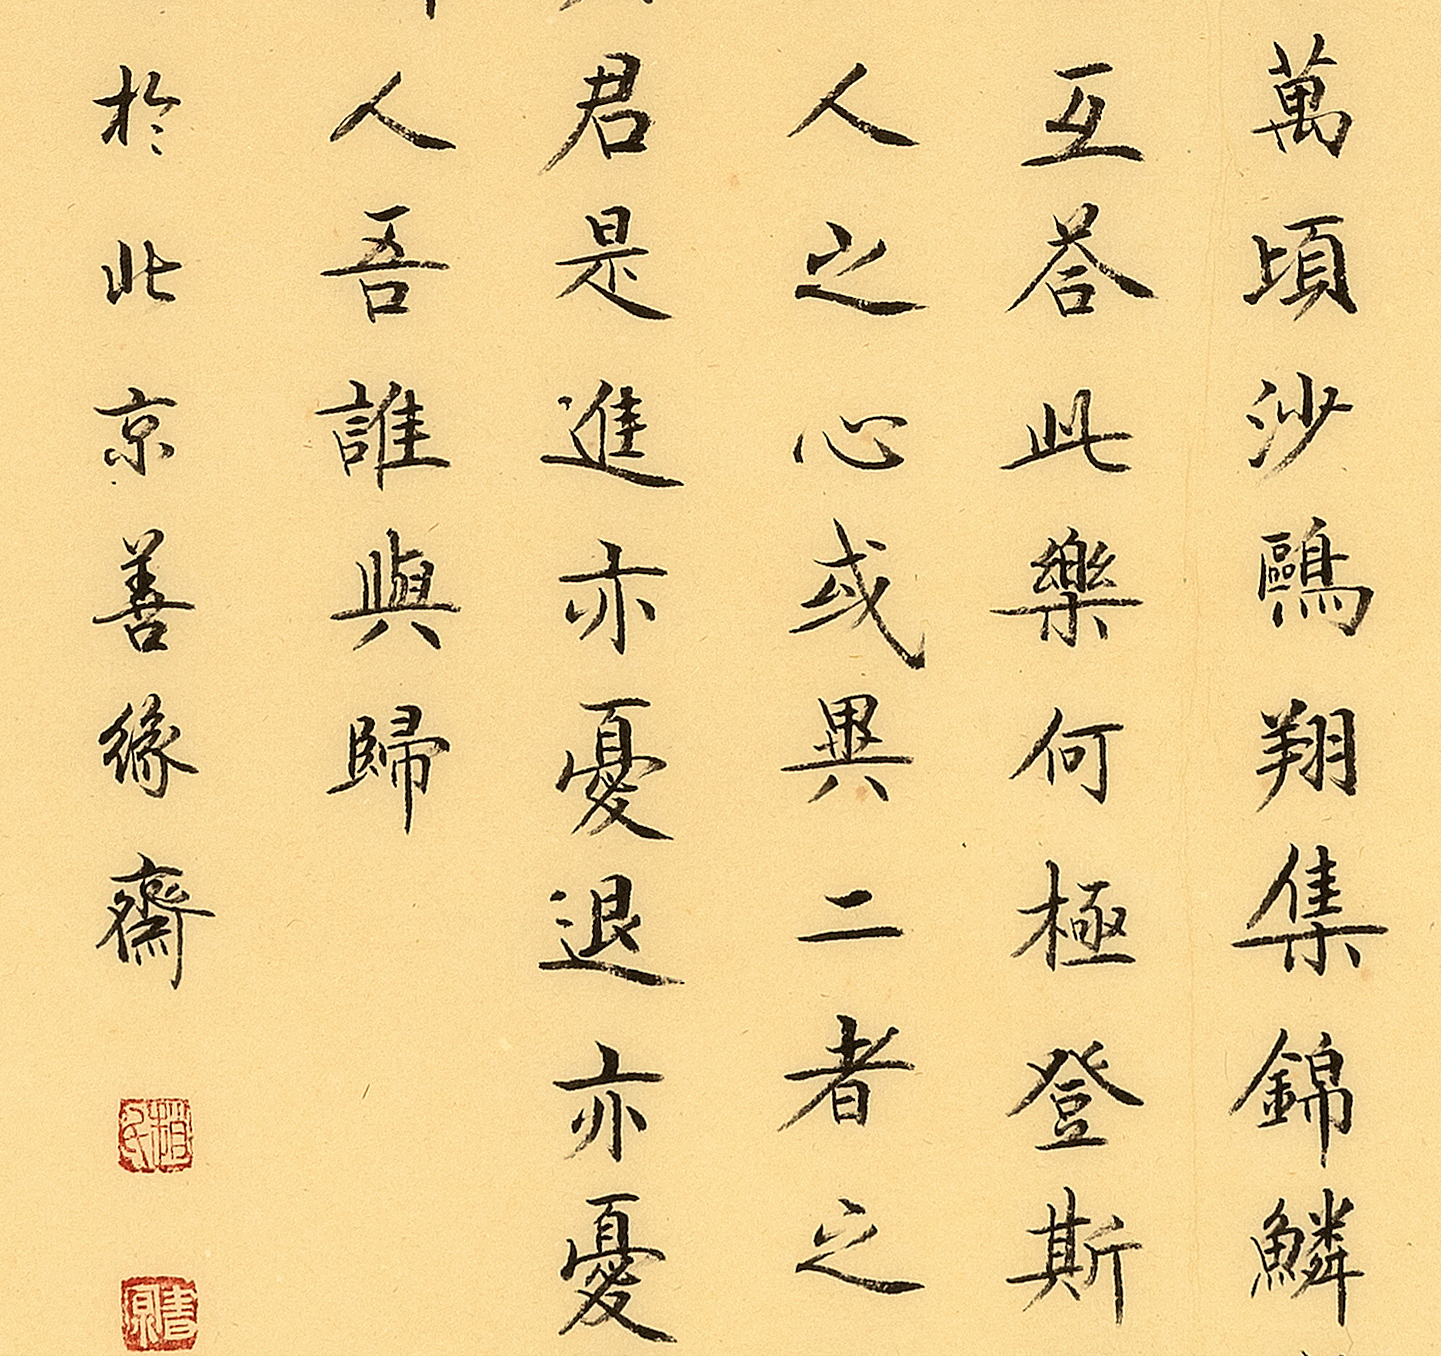 萬頃沙鷗翔集錦鱗
互荅此樂何極登斯
人之心或異二者之
君是進亦憂退亦憂
人吾誰與歸
於此京善緣齋